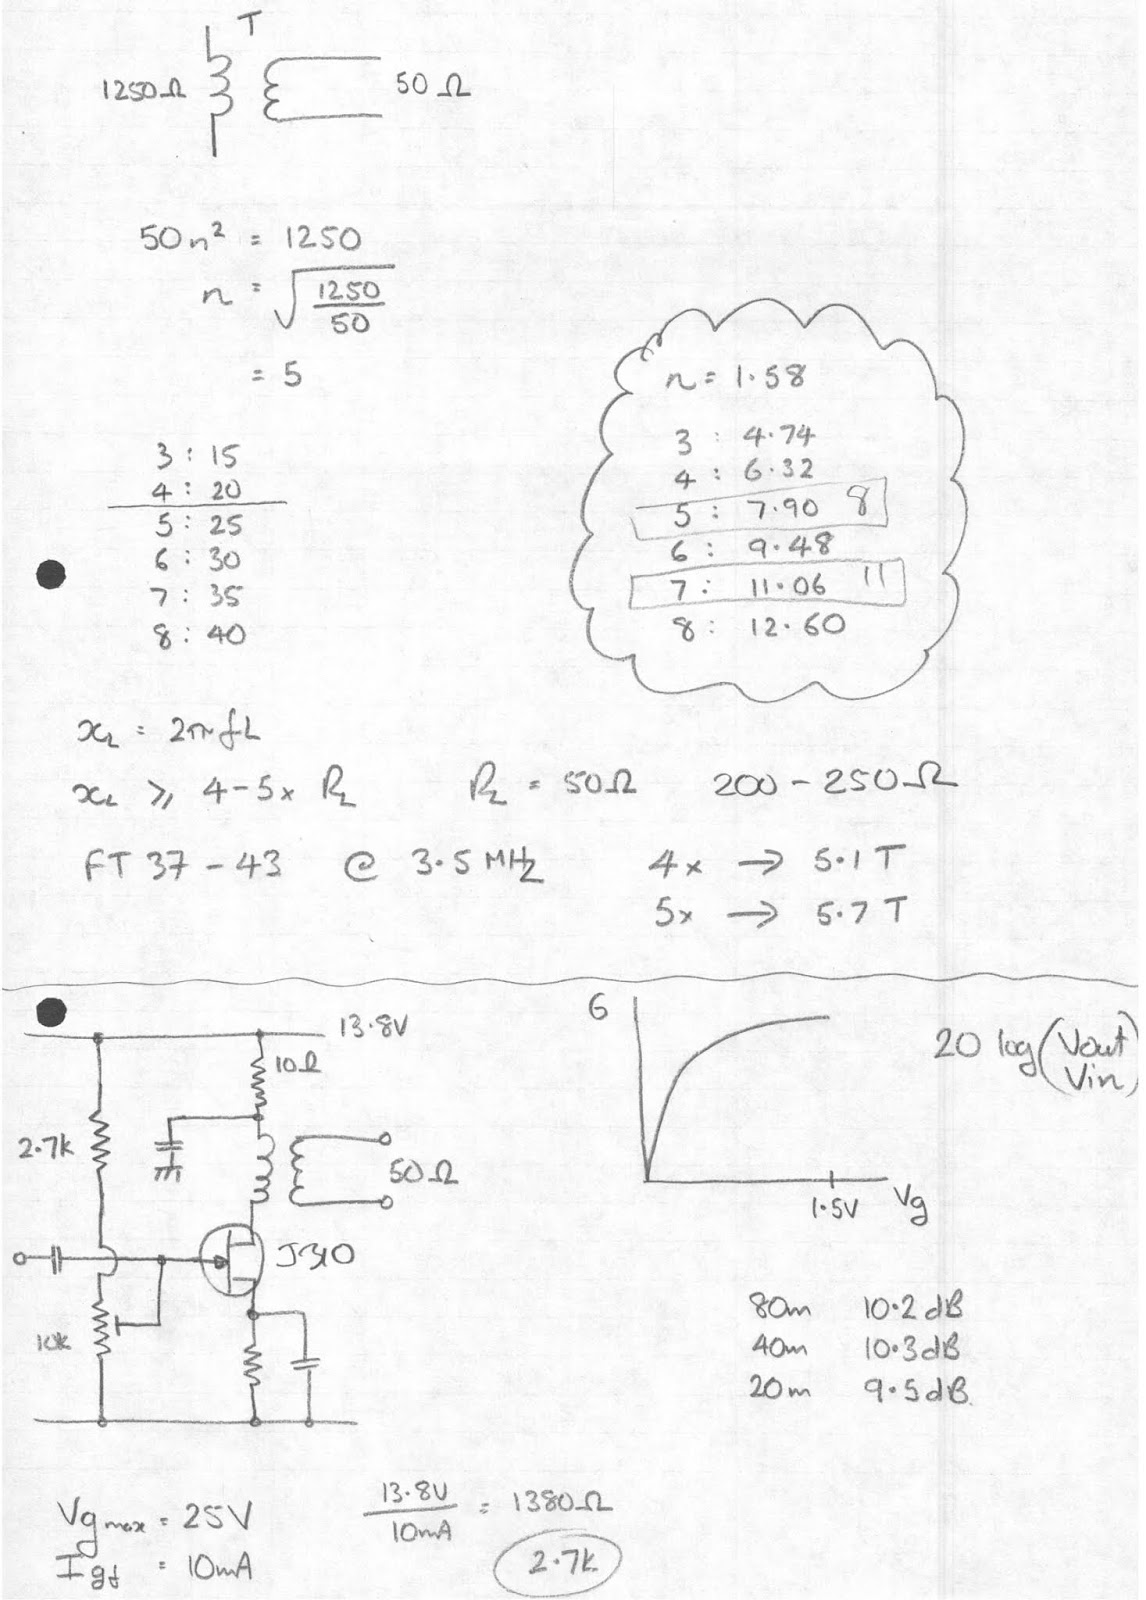 T
1250Ω 50Ω
50n² = 1250
n = √(1250/50)
= 5
3 : 15
4 : 20
5 : 25
6 : 30
7 : 35
8 : 40
n = 1.58
3 : 4.74
4 : 6.32
5 : 7.90 8
6 : 9.48
7 : 11.06 11
8 : 12.60
xL = 2πfL
xL ⩾ 4-5x RL RL = 50Ω 200 - 250Ω
FT 37 - 43 @ 3.5 MHz 4x → 5.1 T
5x → 5.7 T
13.8V
10Ω
2.7k
50Ω
J310
10k
6
1.5V Vg
20 log(Vout/Vin)
80m 10.2 dB
40m 10.3 dB
20m 9.5 dB
Vg max = 25V
Igf = 10mA
13.8V/10mA = 1380Ω
2.7k